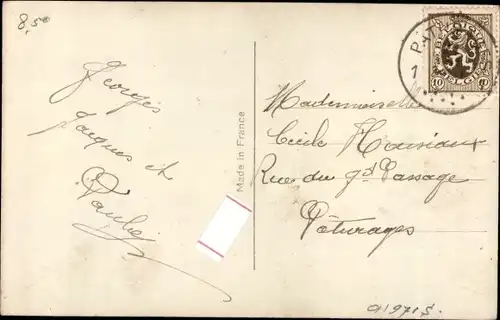 8,5
Georges
Jacques et
Paule
Made in France
PATU
1
BELGIQUE
BELGIE
10
Mademoiselle
Cécile Housiaux
Rue du gd Passage
Pâturages
a1971s.